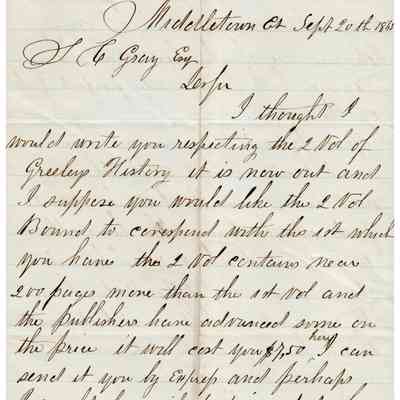 Middletown Ct Sept 20th 186
S C Gray Esq
Dr Sir
I thought I
would write you respecting the 2 Vol of
Greeleys History it is now out and
I suppose you would like the 2 Vol
Bound to corespend with the 1st which
you have the 2 Vol contains near
200 pages more than the 1st Vol and
the publishers have advanced some on
the price it will cost you $7,50 here, I can
send it you by Express and perhaps